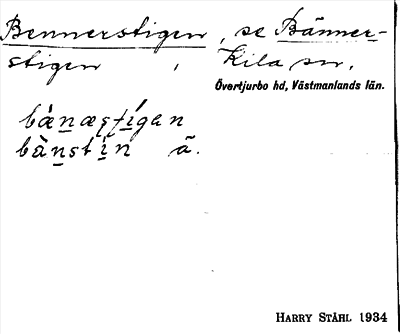 Bennerstigen, se Bänner-
stigen, Kila sn,
Övertjurbo hd, Västmanlands län.
bȧ̀næʂtígen
bànstín ä.
HARRY STÅHL 1934